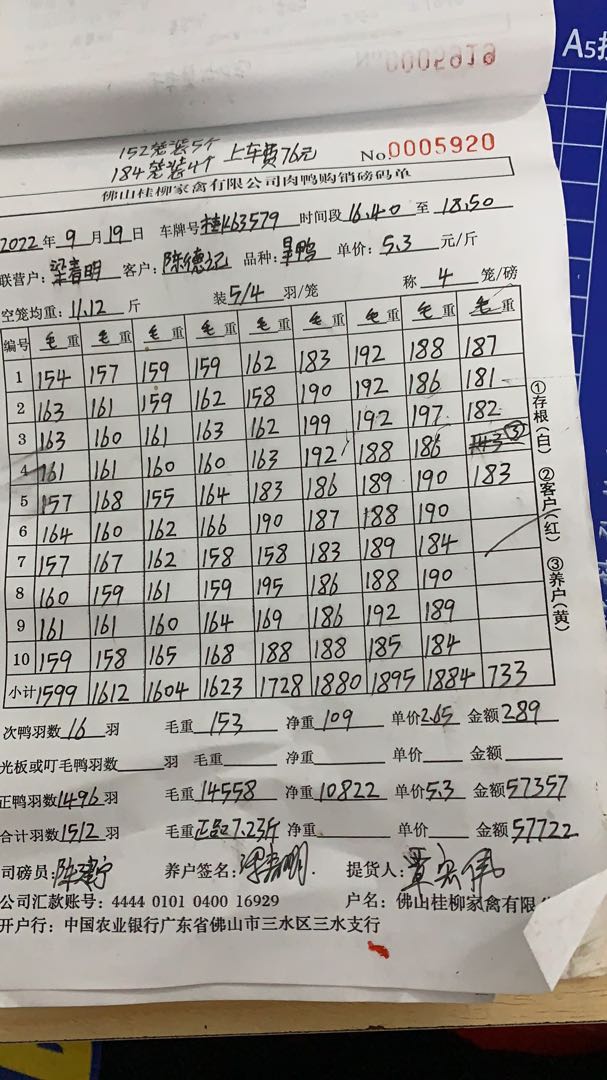 A5
0005919
152笼装5个
184笼装4个 上车费76元
No.0005920
佛山桂柳家禽有限公司肉鸭购销磅码单
2022年9月19日 车牌号桂K63579 时间段16.40至18.50
联营户:梁春明 客户:陈德记 品种:鸭 单价:5.3元/斤
空笼均重:11.12斤 装5/4羽/笼 称4笼/磅
编号 毛重 毛重 毛重 毛重 毛重 毛重 毛重 毛重 毛重
1 154 157 159 159 162 183 192 188 187
2 163 161 159 162 158 190 192 186 181
3 163 160 161 163 162 199 192 197 182
4 161 161 160 160 163 192 188 186 143③
5 157 168 155 164 183 186 189 190 183
6 164 160 162 166 190 187 188 190
7 157 167 162 158 158 183 189 184
8 160 159 161 159 195 186 188 190
9 161 161 160 164 169 186 192 189
10 159 158 165 168 188 188 185 184
小计 1599 1612 1604 1623 1728 1880 1895 1884 733
①存根(白) ②客户(红) ③养户(黄)
次鸭羽数16羽 毛重153 净重109 单价2.65 金额289
光板或叮毛鸭羽数 羽 毛重 净重 单价 金额
正鸭羽数1496羽 毛重14558 净重10822 单价5.3 金额57357
合计羽数1512羽 毛重正均7.23斤 净重 单价 金额57722
司磅员:陈建宁 养户签名:梁春明. 提货人:覃宏伟
公司汇款账号:4444 0101 0400 16929 户名:佛山桂柳家禽有限
开户行:中国农业银行广东省佛山市三水区三水支行